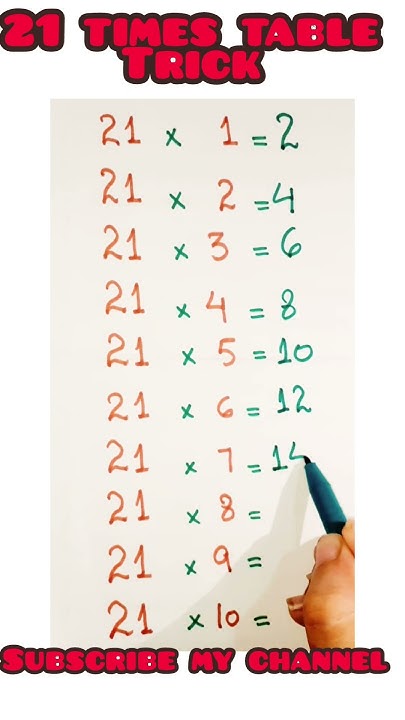 21 TIMES TABLE
TRICK
21 × 1 = 2
21 × 2 = 4
21 × 3 = 6
21 × 4 = 8
21 × 5 = 10
21 × 6 = 12
21 × 7 = 14
21 × 8 =
21 × 9 =
21 × 10 =
SUBSCRIBE MY CHANNEL